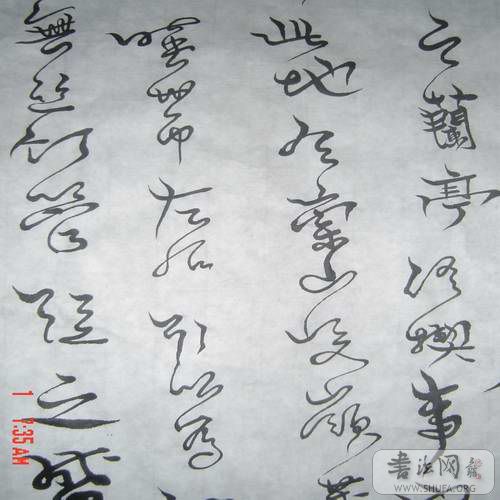 之蘭亭修禊事
此地有崇山峻嶺茂
映帶左右引以為
無絲竹管弦之盛
1 7:35 AM
WWW.SHUFA.ORG